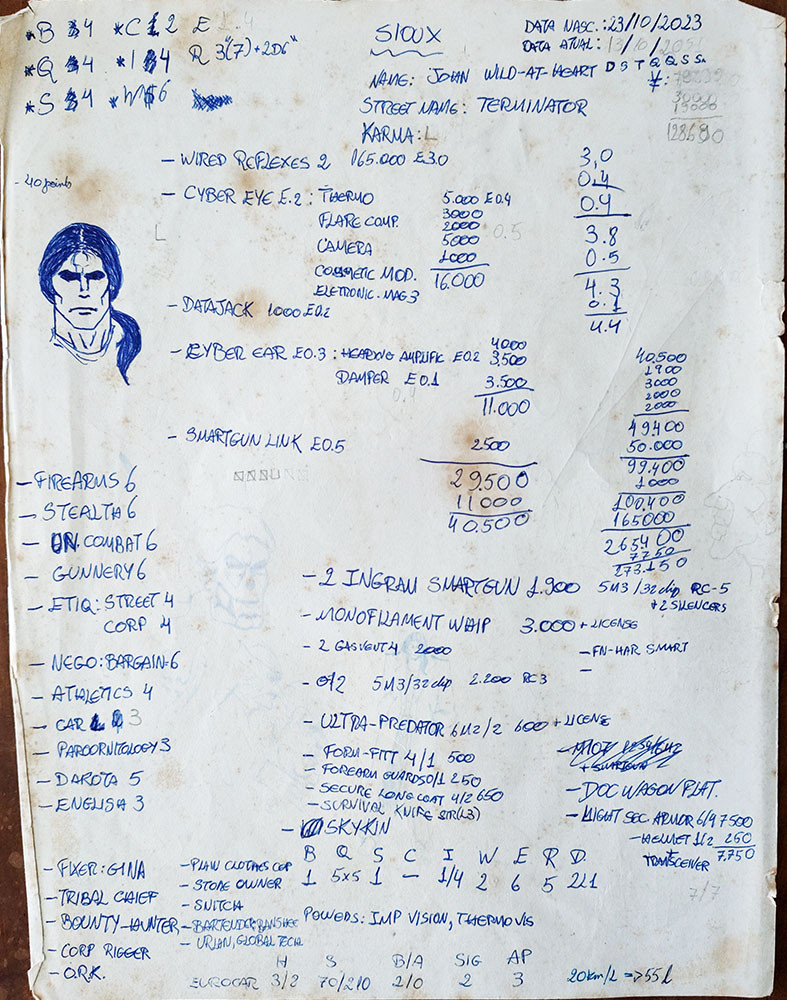 *B 4 *C 2 E
*Q 4 *I 4 R 3"(7)+2D6"
*S 4 *W 6
SIOUX
DATA NASC.: 23/10/2023
DATA ATUAL: 13/10/
D S T Q Q S S
NAME: JOHN WILD-AT-HEART ¥:
STREET NAME: TERMINATOR
128680
KARMA:
- 40 points
- WIRED REFLEXES 2 165.000 E3.0
- CYBER EYE E.2: THERMO 5.000 E0.4
FLARE COMP. 3000
CAMERA 2000
COSMETIC MOD. 5000
ELETRONIC. MAG 3 1000
16.000
0.5
3,0
0.4
0.4
3.8
0.5
4.3
0.1
4.4
- DATAJACK 1000 E0.2
- CYBER EAR E0.3: HEARING AMPLIFIC E0.2 4000
3,500
DAMPER E0.1 3.500
11.000
- SMARTGUN LINK E0.5 2500
29.500
11000
40.500
40.500
1900
3000
2000
2000
49400
50.000
99.400
1000
100.400
165000
265400
7750
273.150
- FIREARMS 6
- STEALTH 6
- UN. COMBAT 6
- GUNNERY 6
- ETIQ: STREET 4
CORP 4
- NEGO: BARGAIN 6
- ATHLETICS 4
- CAR 3
- PARAORNITOLOGY 3
- DAKOTA 5
- ENGLISH 3
- 2 INGRAM SMARTGUN 1.900 5M3/32clip RC-5
+2 SILENCERS
- MONOFILAMENT WHIP 3.000 + LICENSE
- 2 GASVENT 4 2000
- FN-HAR SMART
-
5M3/32clip 2.200 RC3
- ULTRA-PREDATOR 6M2/2 600 + LICENSE
- FORM-FITT 4/1 500
- FOREARM GUARDS 0/1 250
- SECURE LONG COAT 4/2 650
- SURVIVAL KNIFE STR(L3)
- DOC WAGON PLAT.
- LIGHT SEC. ARMOR 6/4 7500
- HELMET 1/2 250
TRANSCEIVER 7.750
7/7
- SKYKIN
B Q S C I W E R D
1 5x5 1 - 1/4 2 6 5 2L1
POWERS: IMP VISION, THERMOVIS
- FIXER: GINA
- TRIBAL CHIEF
- BOUNTY-HUNTER
- CORP RIGGER
- O.R.K.
- PLAIN CLOTHES COP
- STORE OWNER
- SNITCH
- BARTENDER: BANSHEE
- URIAN, GLOBAL TECH.
H S B/A SIG AP
EUROCAR 3/2 70/210 2/0 2 3
20km/L => 55L